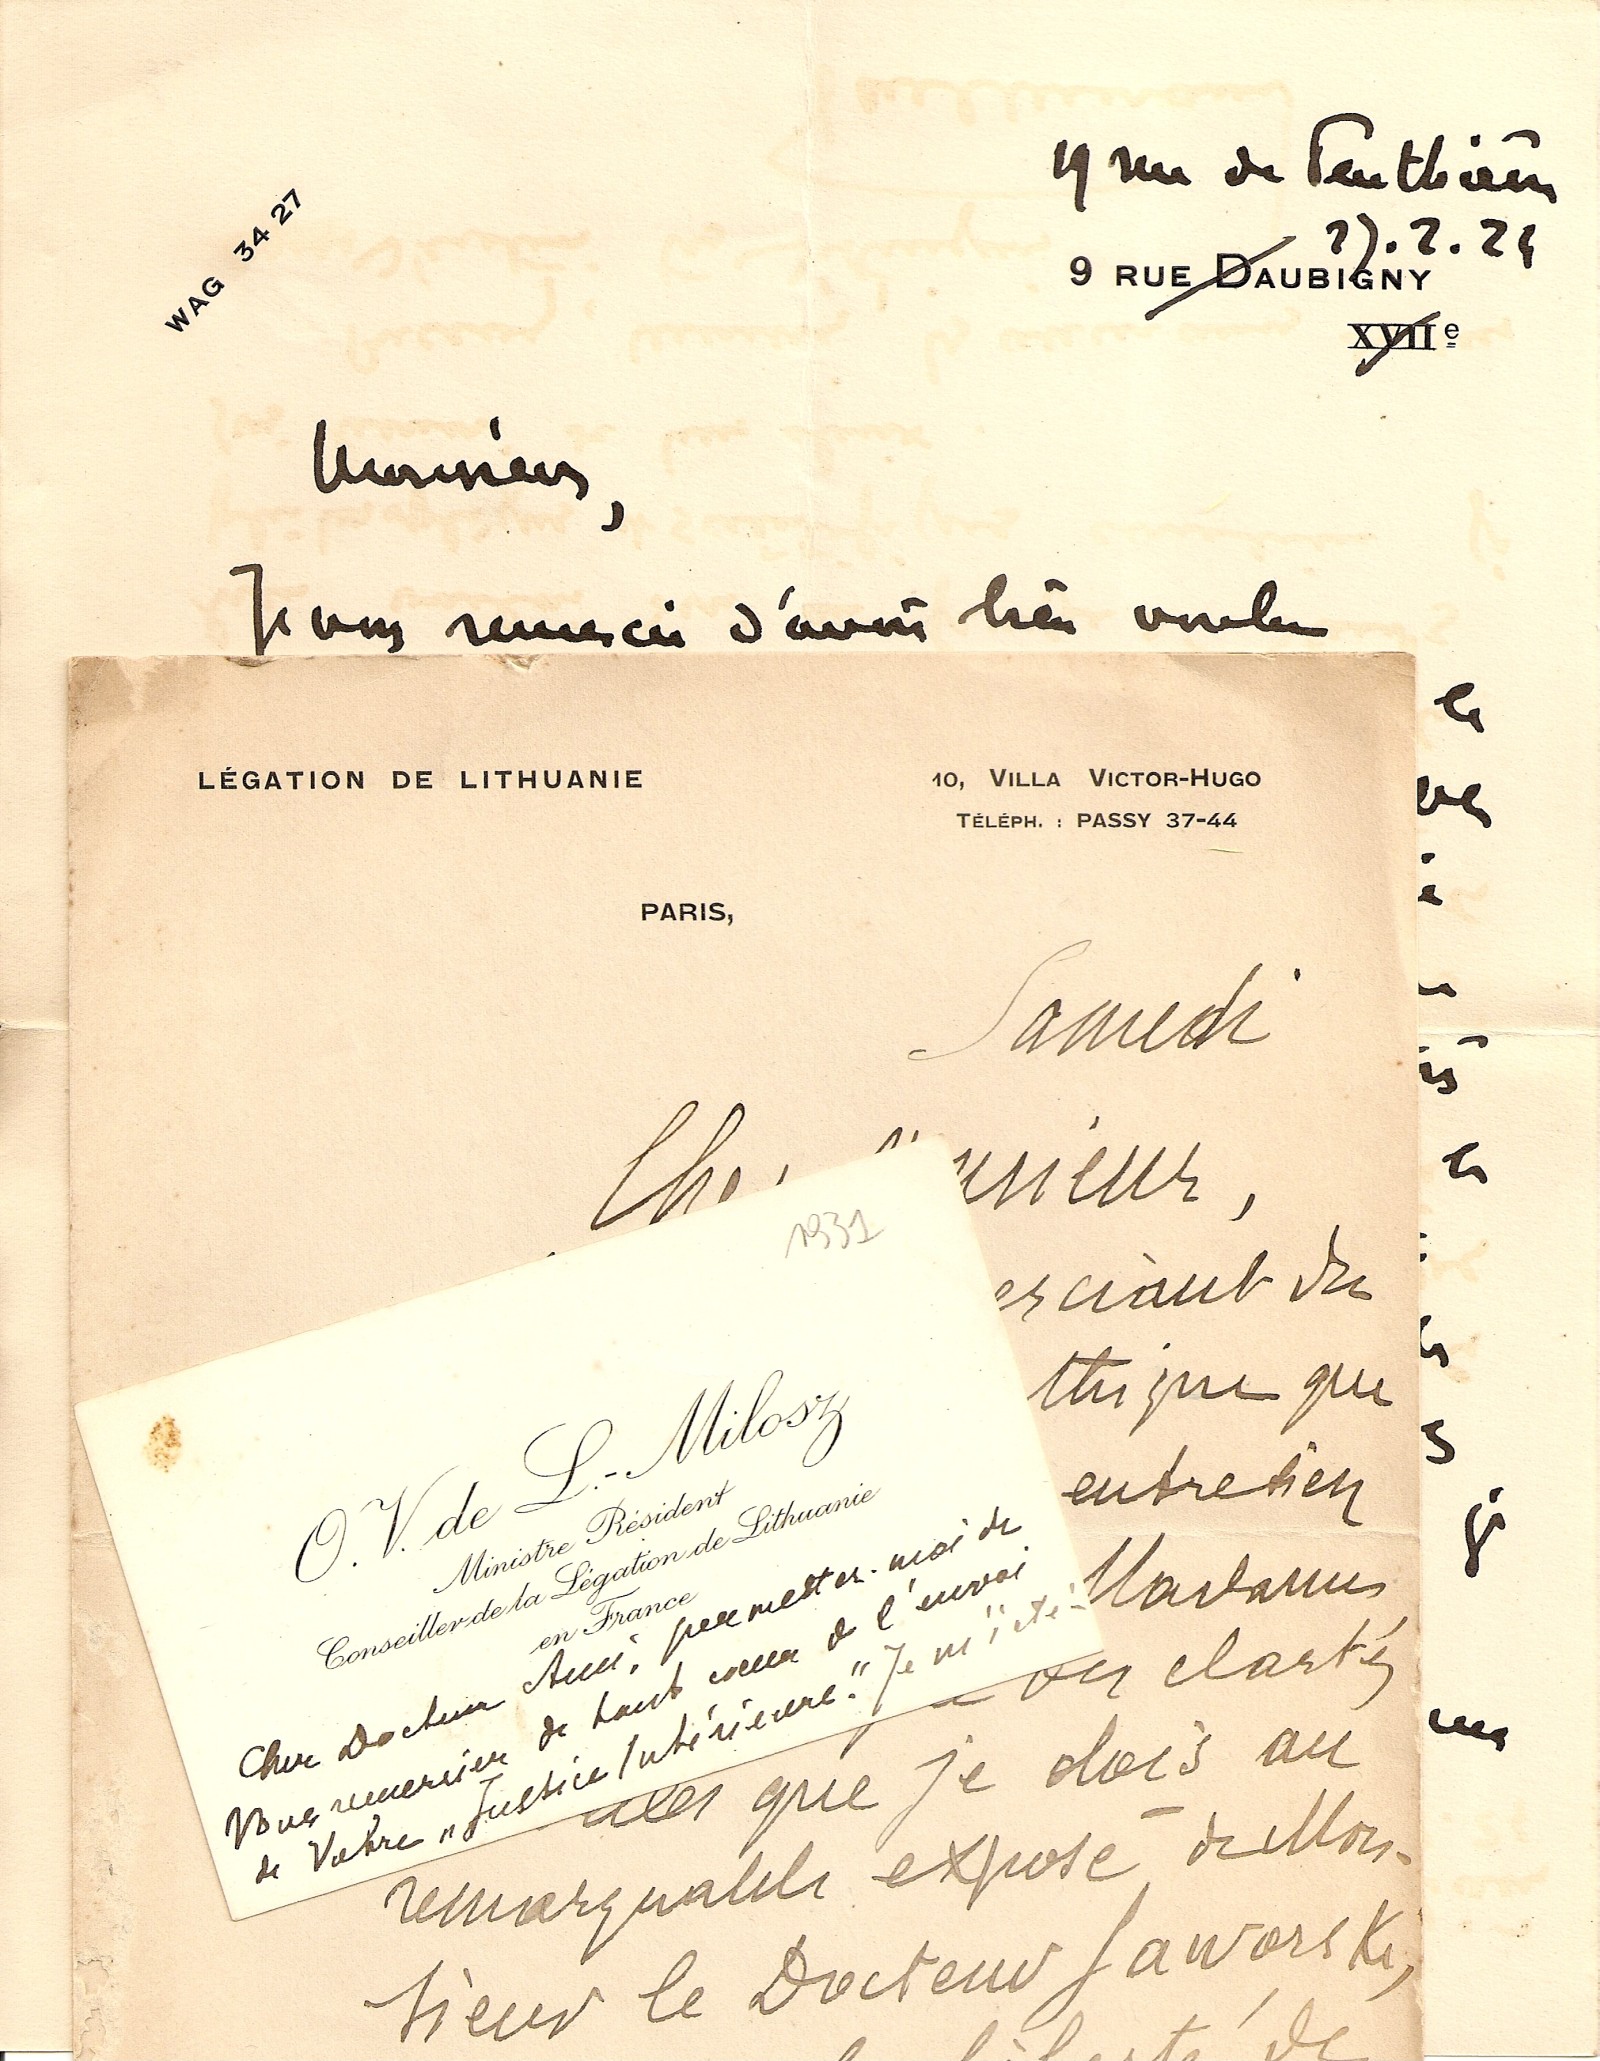 WAG 34 27
19 rue de Penthièvre
27.2.24
9 RUE DAUBIGNY
XVIIe
Monsieur,
Je vous remercie d'avoir bien voulu
LÉGATION DE LITHUANIE
10, VILLA VICTOR-HUGO
TÉLÉPH. : PASSY 37-44
PARIS,
Samedi
Cher
sieur,
erciant du
thique que
entretien
Madame
clartés
que je dois au
remarquable exposé de Mon-
sieur le Docteur Jaworski,
liberté de
1931
O. V. de L.-Milosz
Ministre Résident
Conseiller de la Légation de Lithuanie
en France
Cher Docteur Ami, permettez-moi de
Vous remercier de tout cœur de l'envoi
de Votre „Justice Intérieure". Je m'